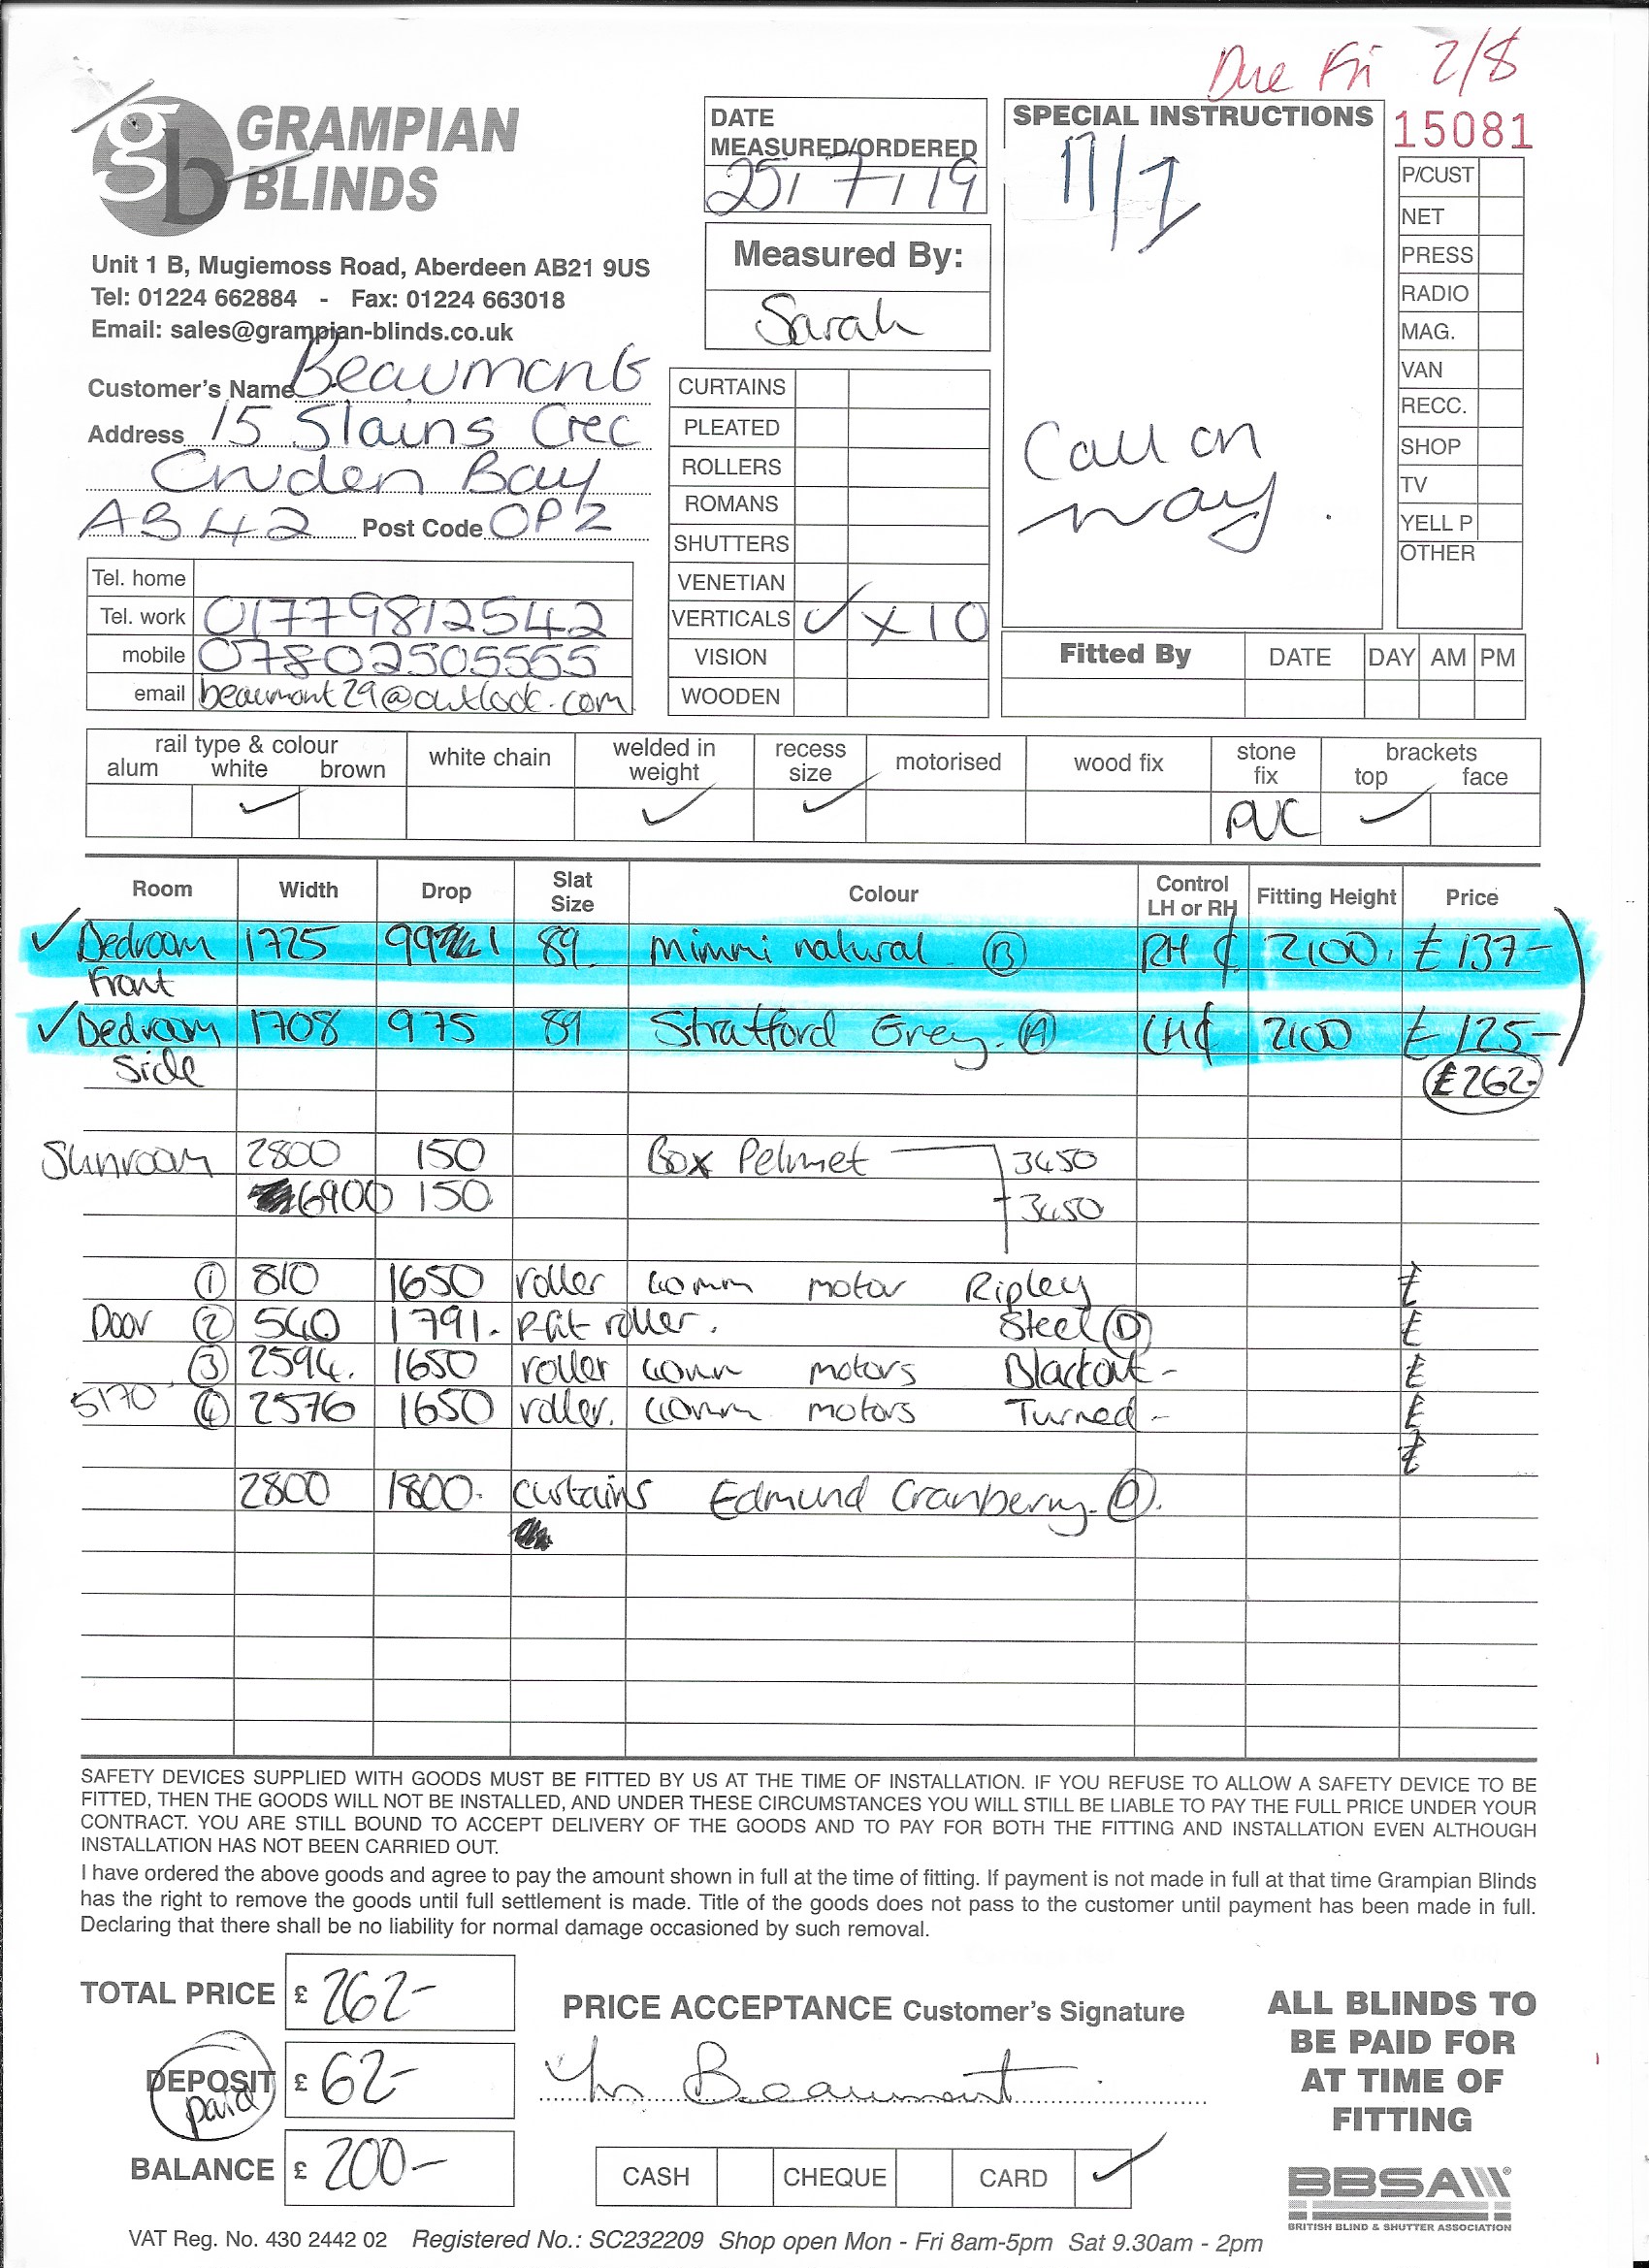 Due Fri 2/8
GRAMPIAN
BLINDS
gb
Unit 1 B, Mugiemoss Road, Aberdeen AB21 9US
Tel: 01224 662884 - Fax: 01224 663018
Email: sales@grampian-blinds.co.uk
Customer's Name Beaumont
Address 15 Slains Crec
Cruden Bay
AB42 Post Code 0PZ
Tel. home
Tel. work 01779812542
mobile 07802505555
email beaumont29@outlook.com
DATE
MEASURED/ORDERED
25/7/19
Measured By:
Sarah
CURTAINS
PLEATED
ROLLERS
ROMANS
SHUTTERS
VENETIAN
VERTICALS ✓ x 10
VISION
WOODEN
SPECIAL INSTRUCTIONS
Call on
way.
15081
P/CUST
NET
PRESS
RADIO
MAG.
VAN
RECC.
SHOP
TV
YELL P
OTHER
Fitted By DATE DAY AM PM
rail type & colour white chain welded in weight recess size motorised wood fix stone fix brackets
alum white brown top face
✓ ✓ ✓ PVC ✓
Room Width Drop Slat Size Colour Control LH or RH Fitting Height Price
✓ Bedroom 1725 991 89 Mimmi natural (B) RH ¢ 2100. £137-
Front
✓ Bedroom 1708 975 89 Stratford Grey. (A) LH¢ 2100 £125-
Side £262-
Sunroom 2800 150 Box Pelmet 3450
6900 150 3450
① 810 1650 roller comm motor Ripley £
Door ② 540 1791. roller. Steel (D) £
③ 2594. 1650 roller comm motors Blackout - £
5170 ④ 2576 1650 roller. comm motors Turned - £
£
2800 1800. curtains Edmund Cranberry. (D).
SAFETY DEVICES SUPPLIED WITH GOODS MUST BE FITTED BY US AT THE TIME OF INSTALLATION. IF YOU REFUSE TO ALLOW A SAFETY DEVICE TO BE
FITTED, THEN THE GOODS WILL NOT BE INSTALLED, AND UNDER THESE CIRCUMSTANCES YOU WILL STILL BE LIABLE TO PAY THE FULL PRICE UNDER YOUR
CONTRACT. YOU ARE STILL BOUND TO ACCEPT DELIVERY OF THE GOODS AND TO PAY FOR BOTH THE FITTING AND INSTALLATION EVEN ALTHOUGH
INSTALLATION HAS NOT BEEN CARRIED OUT.
I have ordered the above goods and agree to pay the amount shown in full at the time of fitting. If payment is not made in full at that time Grampian Blinds
has the right to remove the goods until full settlement is made. Title of the goods does not pass to the customer until payment has been made in full.
Declaring that there shall be no liability for normal damage occasioned by such removal.
TOTAL PRICE £ 262-
DEPOSIT £ 62-
paid
BALANCE £ 200-
PRICE ACCEPTANCE Customer's Signature
Beaumont
CASH CHEQUE CARD ✓
ALL BLINDS TO
BE PAID FOR
AT TIME OF
FITTING
BBSA
BRITISH BLIND & SHUTTER ASSOCIATION
VAT Reg. No. 430 2442 02 Registered No.: SC232209 Shop open Mon - Fri 8am-5pm Sat 9.30am - 2pm